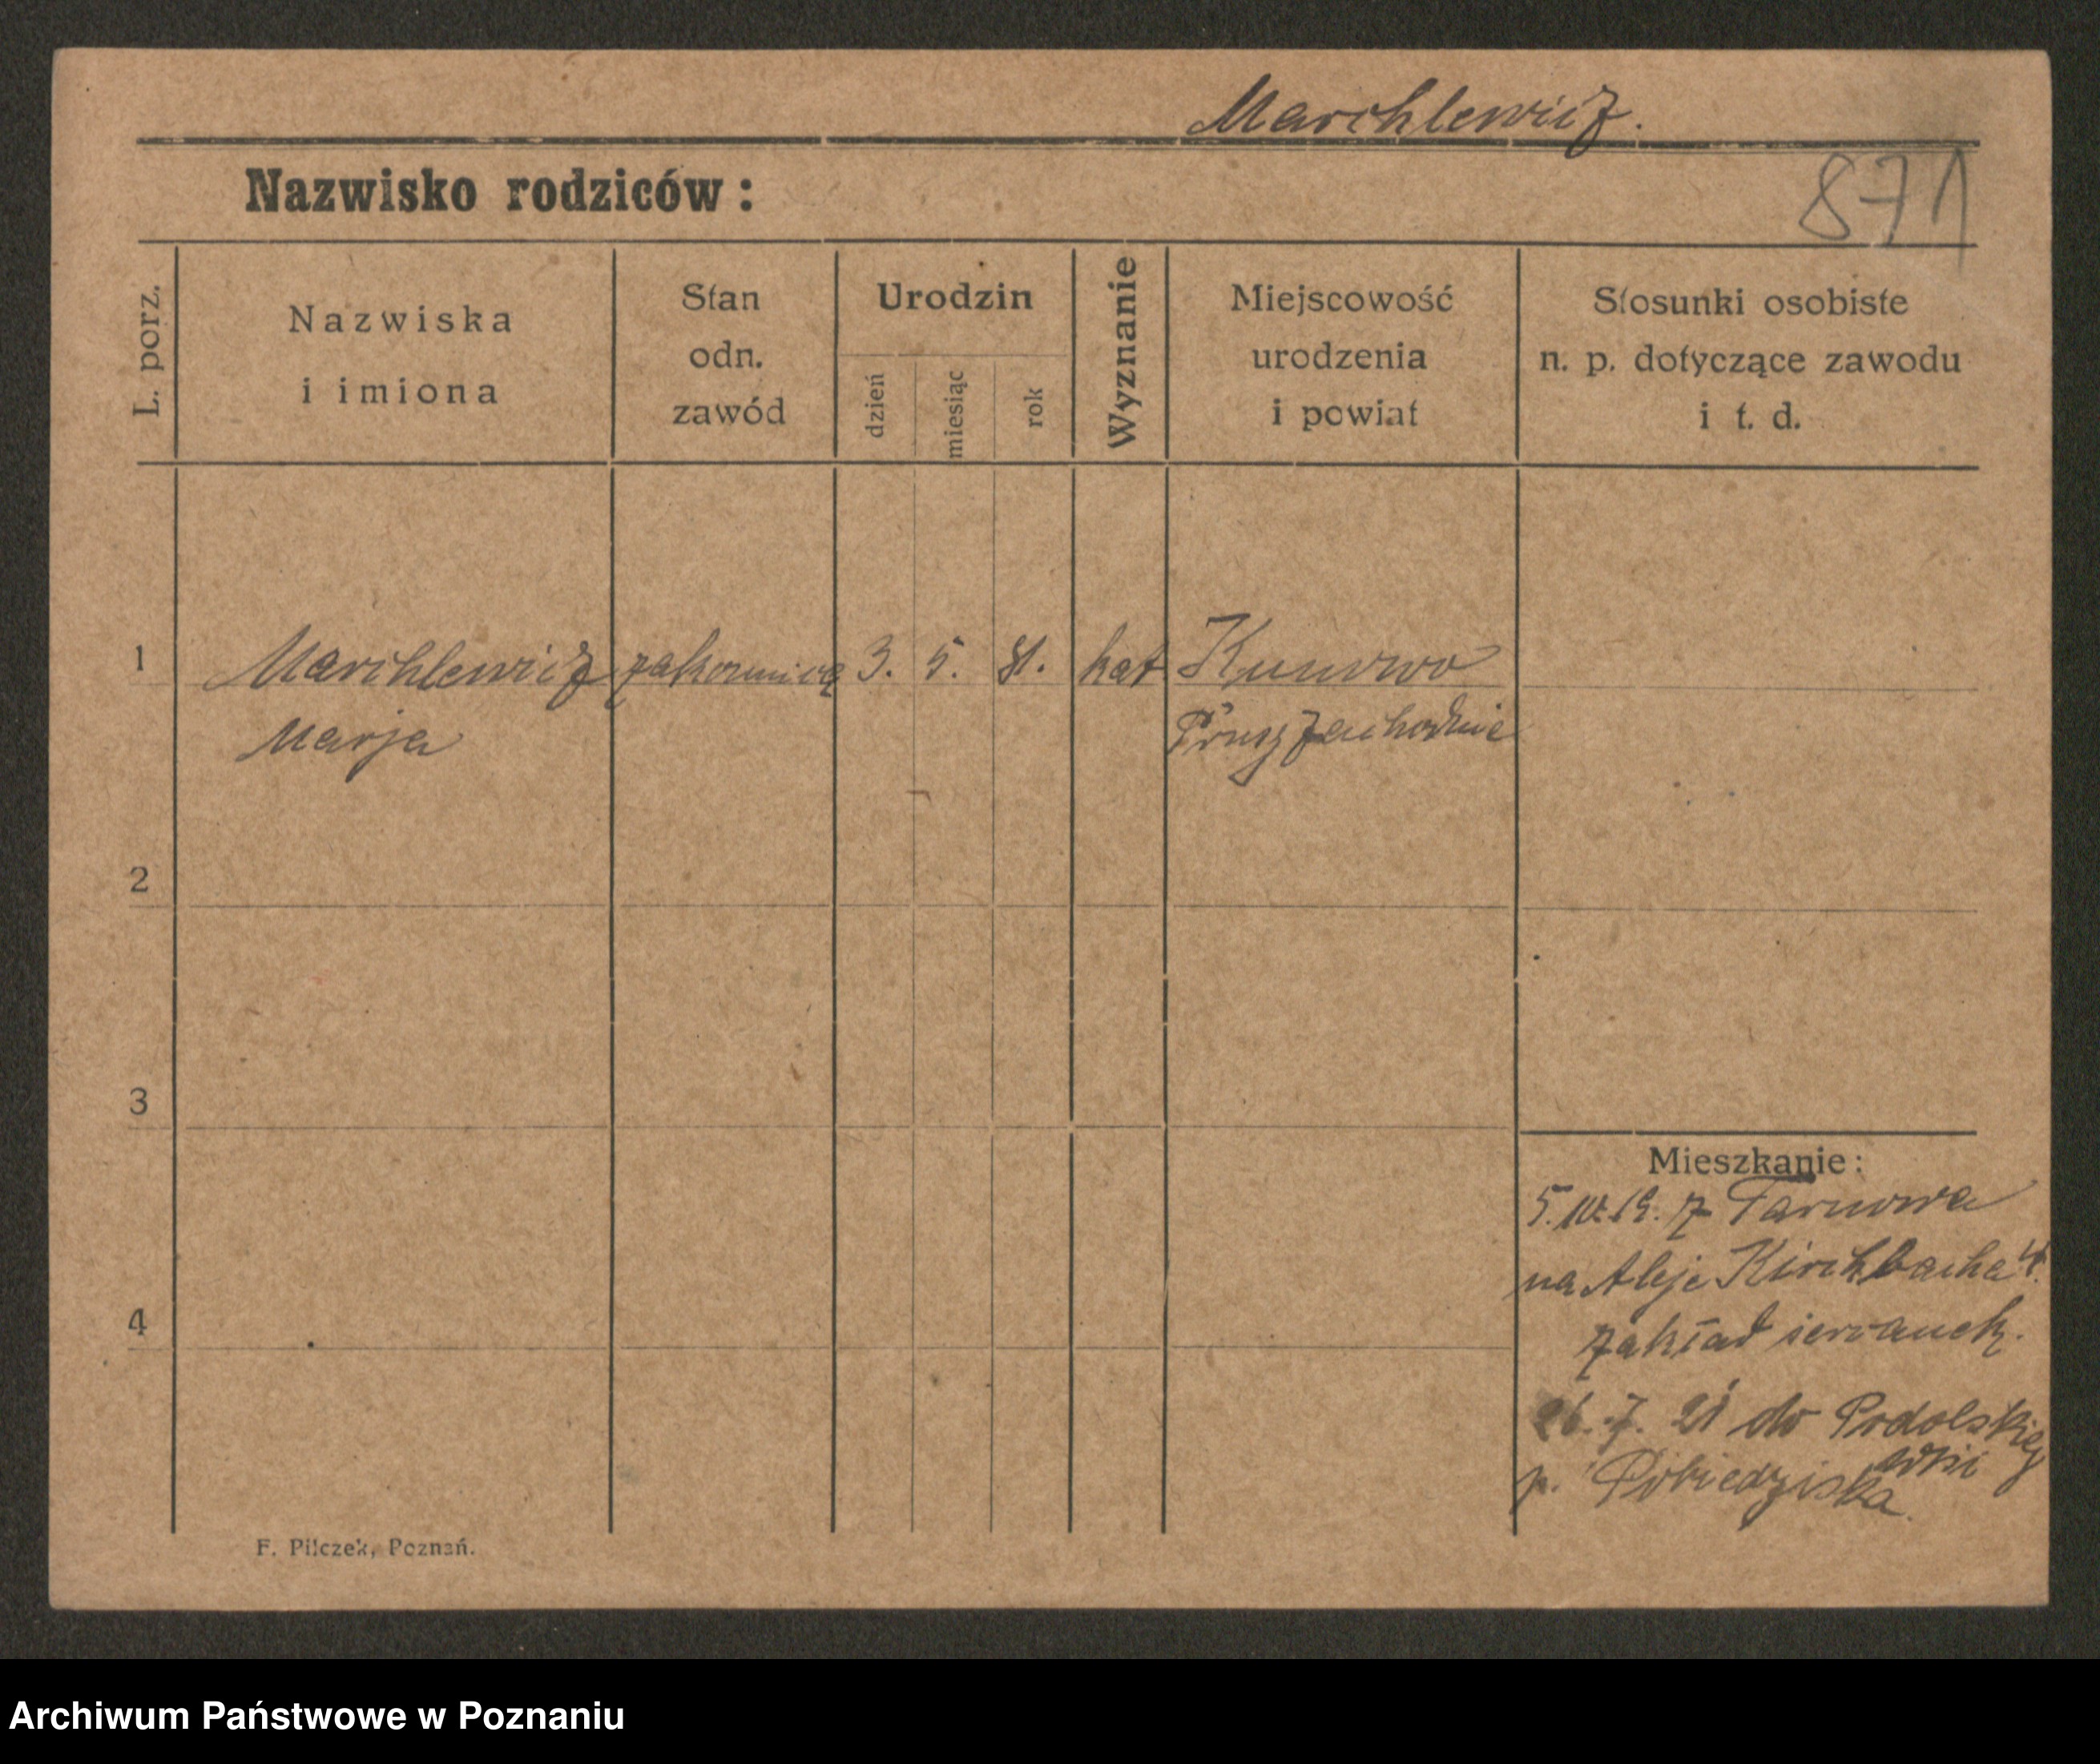 Marchlewicz.
Nazwisko rodziców:
871
L. porz.
Nazwiska
i imiona
Stan
odn.
zawód
Urodzin
dzień
miesiąc
rok
Wyznanie
Miejscowość
urodzenia
i powiat
Stosunki osobiste
n. p. dotyczące zawodu
i t. d.
1
Marchlewicz zakonnica 3. 5. 81. kat Kunowo
Marja Prusy Zachodnie
2
3
4
Mieszkanie:
5.10.19. z Tarnowa
na Aleje Kirchbacha 4.
zakład serwanek.
26.7.21 do Podolskiej
wsi
p. Pobiedziska.
F. Pilczek, Poznań.
Archiwum Państwowe w Poznaniu